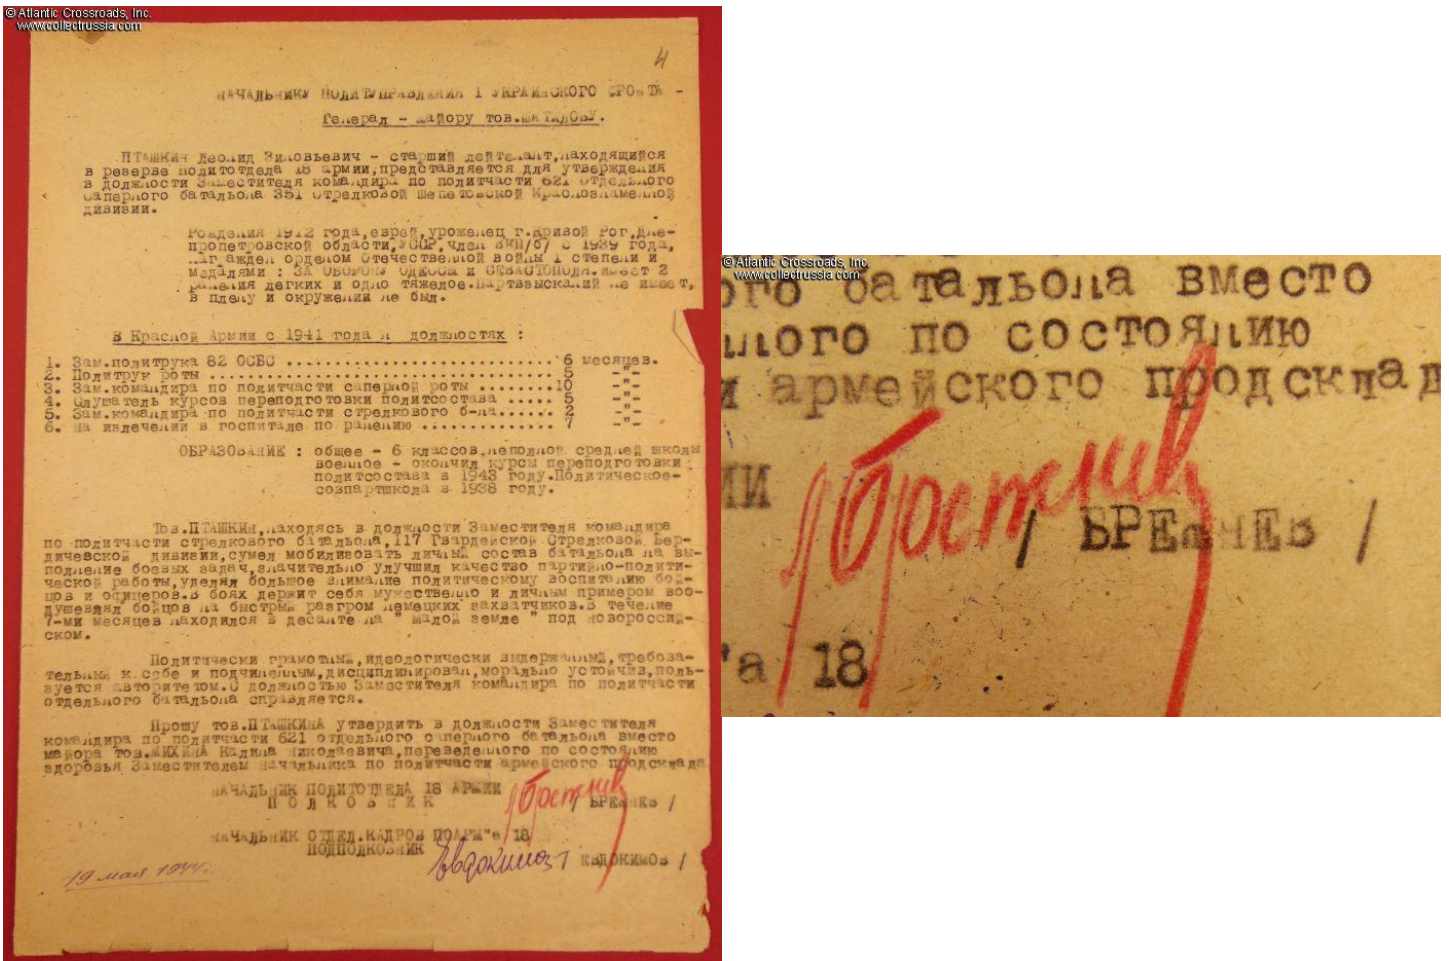 © Atlantic Crossroads, Inc.
www.collectrussia.com
4
НАЧАЛЬНИКУ ПОЛИТУПРАВЛЕНИЯ 1 УКРАИНСКОГО ФРОНТА -
Генерал - майору тов.ШАТИЛОВУ.
ПТАШКИН Леонид Зиновьевич - старший лейтенант,находящийся
в резерве политотдела 18 армии,представляется для утверждения
в должности Заместителя командира по политчасти 621 отдельного
саперного батальона 351 стрелковой Шепетовской Краснознаменной
дивизии.
Рождения 1912 года,еврей,уроженец г.Кривой Рог,Дне-
пропетровской области,УССР,член ВКП/б/ с 1939 года,
награжден орденом Отечественной войны 1 степени и
медалями : ЗА ОБОРОНУ ОДЕССЫ и СЕВАСТОПОЛЯ.Имеет 2
ранения легких и одно тяжелое.Партвзысканий не имеет,
в плену и окружении не был.
В Красной Армии с 1941 года и должностях :
1. Зам.политрука 82 ОСБС ............................ 6 месяцев.
2. Политрук роты .................................... 5 -"-
3. Зам.командира по политчасти саперной роты ........10 -"-
4. Слушатель курсов переподготовки политсостава ..... 5 -"-
5. Зам.командира по политчасти стрелкового б-на...... 2 -"-
6. На излечении в госпитале по ранению .............. 7 -"-
ОБРАЗОВАНИЕ : общее - 6 классов,неполной средней школы
военное - окончил курсы переподготовки
политсостава в 1943 году.Политическое-
совпартшкола в 1938 году.
Тов.ПТАШКИН,находясь в должности Заместителя командира
по политчасти стрелкового батальона,117 Гвардейской Стрелковой Бер-
дичевской дивизии,сумел мобилизовать личный состав батальона на вы-
полнение боевых задач,значительно улучшил качество партийно-полити-
ческой работы,уделял большое внимание политическому воспитанию бой-
цов и офицеров.В боях держит себя мужественно и личным примером воо-
душевлял бойцов на быстрый разгром немецких захватчиков.В течение
7-ми месяцев находился в десанте на " Малой земле " под Новороссий-
ском.
Политически грамотный,идеологически выдержанный,требова-
тельный к себе и подчиненным,дисциплинирован,морально устойчив,поль-
зуется авторитетом.С должностью Заместителя командира по политчасти
отдельного батальона справляется.
Прошу тов.ПТАШКИНА утвердить в должности Заместителя
командира по политчасти 621 отдельного саперного батальона вместо
майора тов.МИХИНА Калина Николаевича,переведенного по состоянию
здоровья Заместителем начальника по политчасти армейского продсклада
НАЧАЛЬНИК ПОЛИТОТДЕЛА 18 АРМИИ
ПОЛКОВНИК
Брежнев / БРЕЖНЕВ /
НАЧАЛЬНИК ОТДЕЛ.КАДРОВ ПОАРМ"а 18
ПОДПОЛКОВНИК
Евдокимов / ЕВДОКИМОВ /
19 мая 1944г.
© Atlantic Crossroads, Inc.
www.collectrussia.com
ого батальона вместо
нного по состоянию
и армейского продсклад
ИИ
Брежнев / БРЕЖНЕВ /
"а 18